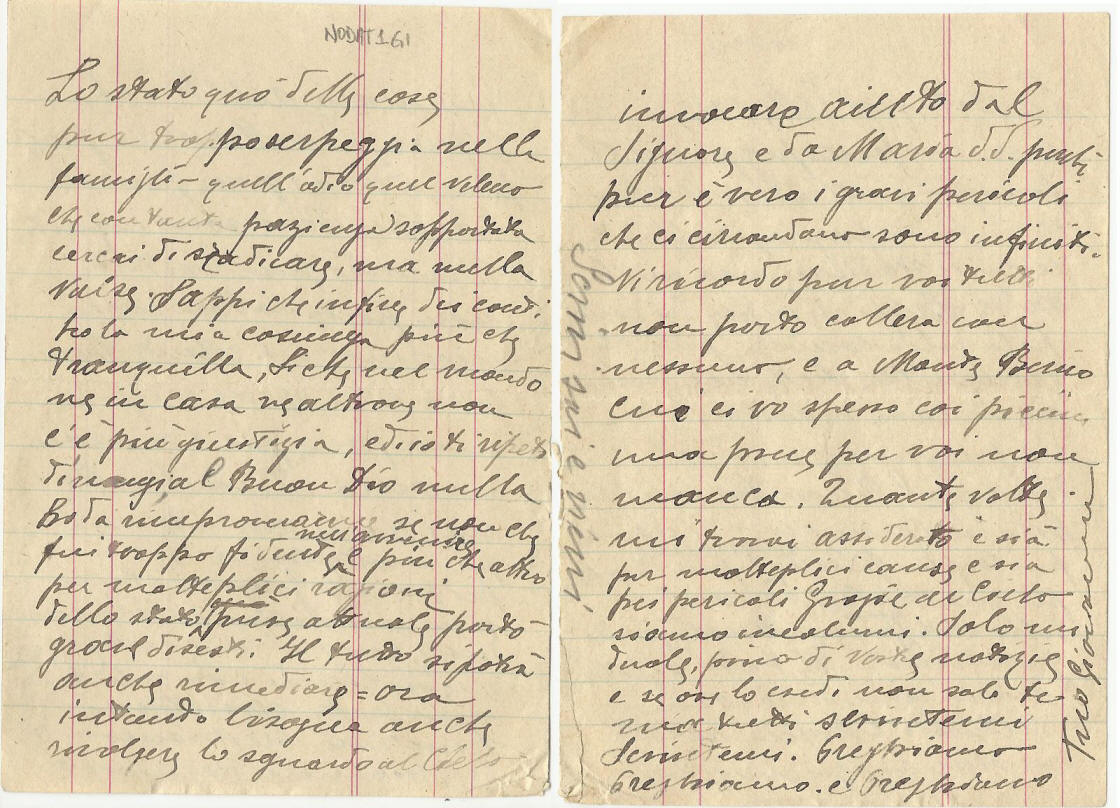 NODAT 1 GI
Lo stato quò delle cose
pur trop. poserpeggia nelle
famigli- quell'odio quel veleno
che con tanta pazienza sopportata
cercai di sradicare, ma nulla
valse. Sappi che infine dei conti
ho la mia cosienza più che
tranquilla, Si che nel mondo
ne in casa ne altrove non
c'è più giustizia, ed io ti ripeto
dinnazi al Buon Dio nulla
se non che
fui troppo fidente nell'avvenire e più che altro
per molteplici ragioni
dello stato attuale portò
gravi disesti. Il tutto si potrà
anche rimediare = ora
intanto bisogna anche
rivolgere lo sguardo al Cielo
invocare aiuto dal
Signore e da Maria
pur è vero i gravi pericoli
che ci circondano sono infiniti.
Vi ricordo pur voi tutti
non porto collera con
nessuno, e a Monte Berico
ci vo spesso coi piccini
una prece per voi non
manca. Quante volte
mi trovai assiderato e sia
per molteplici cause e sia
pei pericoli Grazie al Cielo
siamo incolumi. Solo mi
duole, privo di vostre notizie
e se ore lo credi non solo te
ma tutti scrivetemi
Scrivetemi. Preghiamo
Preghiamo. e Preghiamo
Tuo Giovanni
Scrivi